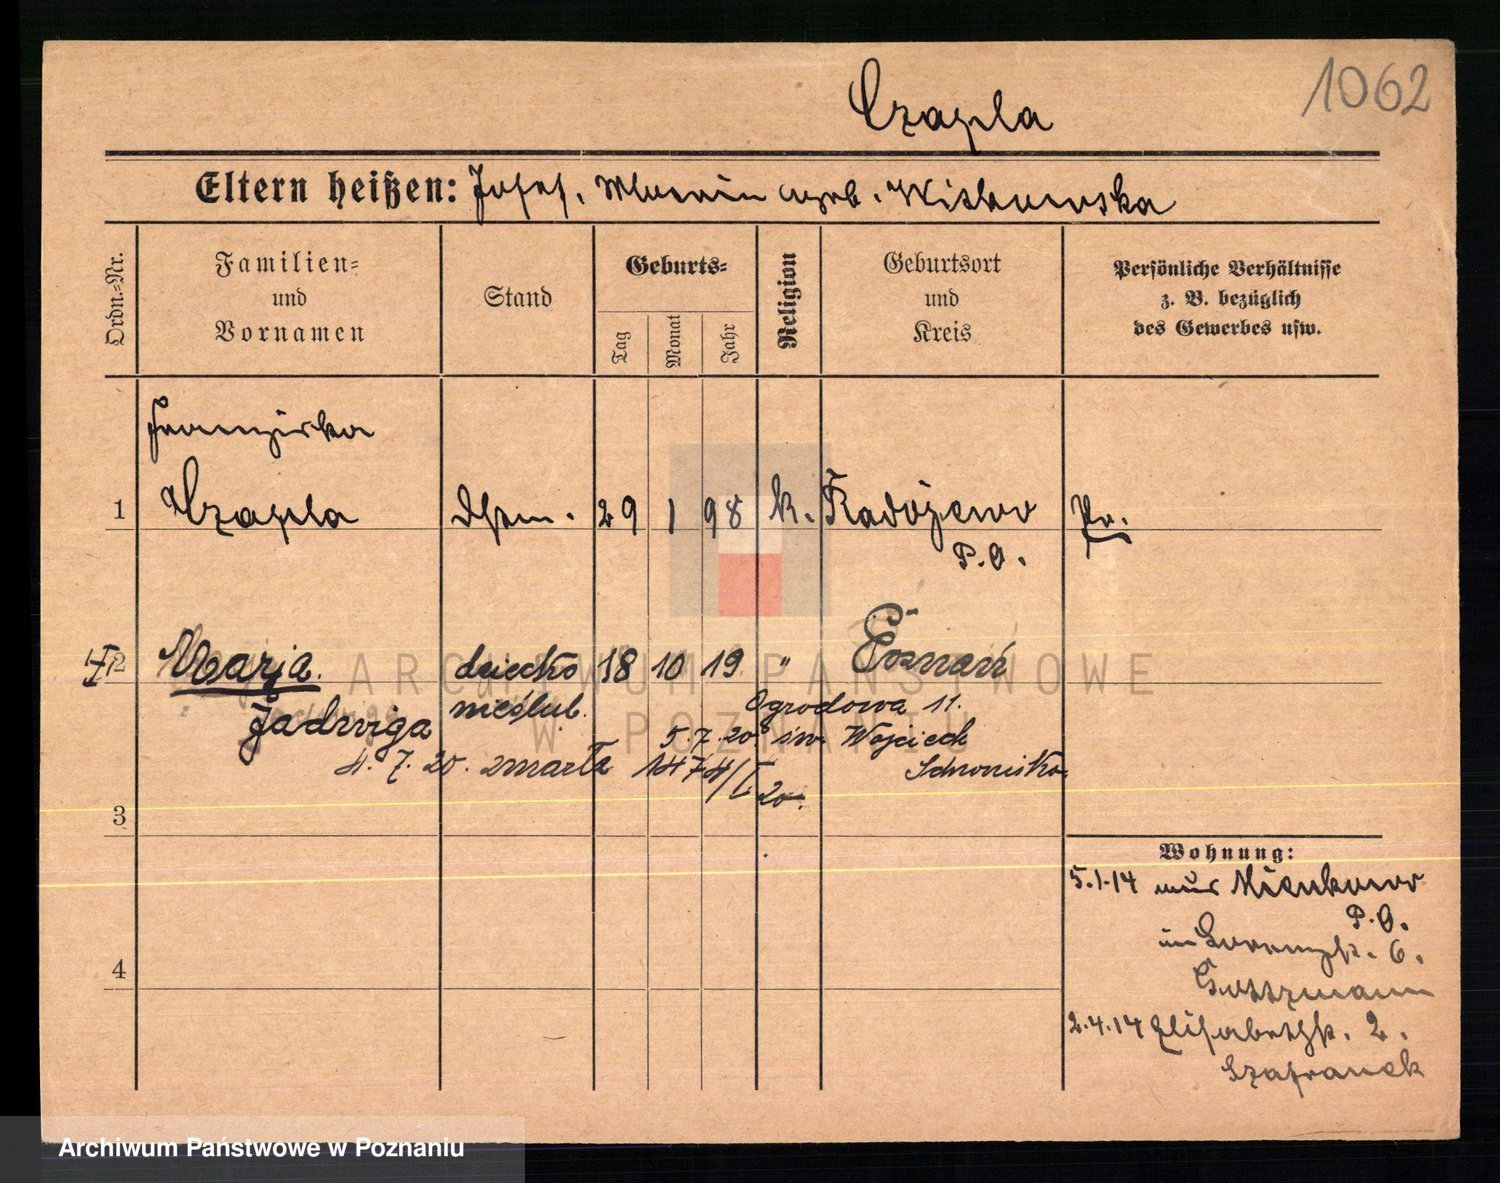 Czapla
1062
Eltern heißen: Josef, Maria geb. Witkowska
Ordn.-Nr.
Familien- und Vornamen
Stand
Geburts-
Tag
Monat
Jahr
Religion
Geburtsort und Kreis
Persönliche Verhältnisse z. B. bezüglich des Gewerbes usw.
Franziska
1 Czapla Dstm. 29 1 98 k. Radojewo Pr.
P.O.
2 Marja dziecko 18 10 19 " Poznań
Jadwiga nieślub. Ogrodowa 11.
5.7.20. św. Wojciech
4. 7. 20. zmarła 1474/I 20. Schronisko
3
Wohnung:
5.1.14 aus
P.O.
4
in 6.
2.4.14 Elisabethstr. 2.
Szafranek
ARCHIWUM PAŃSTWOWE
W POZNANIU
Archiwum Państwowe w Poznaniu